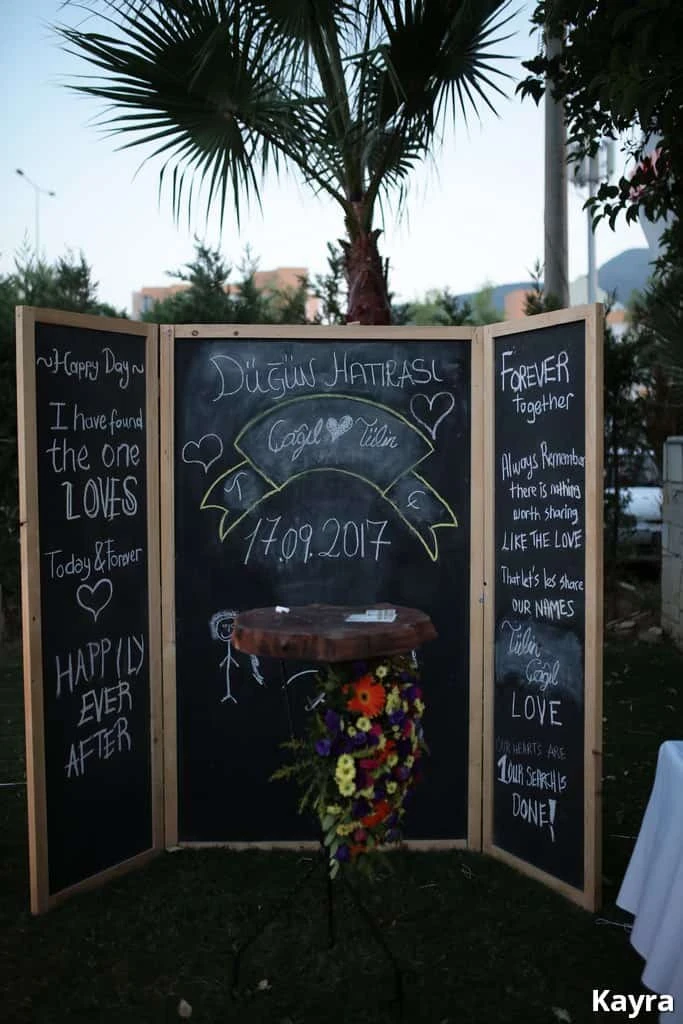 ~Happy Day~
I have found
the one
LOVES
Today & Forever
HAPPILY
EVER
AFTER
DÜĞÜN HATIRASI
Çağıl Tülin
T Ç
17.09.2017
FOREVER
together
Always Remember
there is nothing
worth sharing
LIKE THE LOVE
That let's les share
OUR NAMES
Tülin
Çağıl
LOVE
OUR HEARTS ARE
1 OUR SEARCH IS
DONE!
Kayra